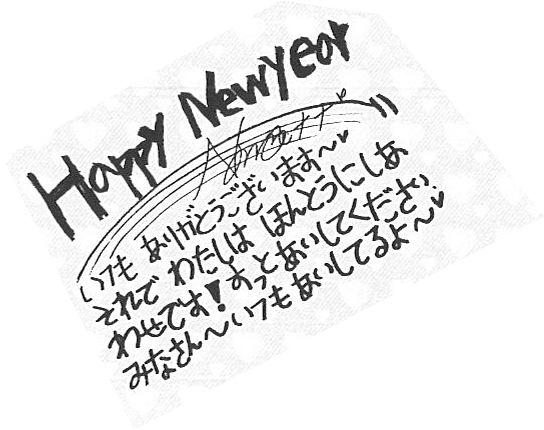 Happy Newyear
いつも ありがとうございます〜♥
それで わたしは ほんとうにしあ
わせです！ずっとあいしてください
みなさん〜いつもあいしてるよ〜♥